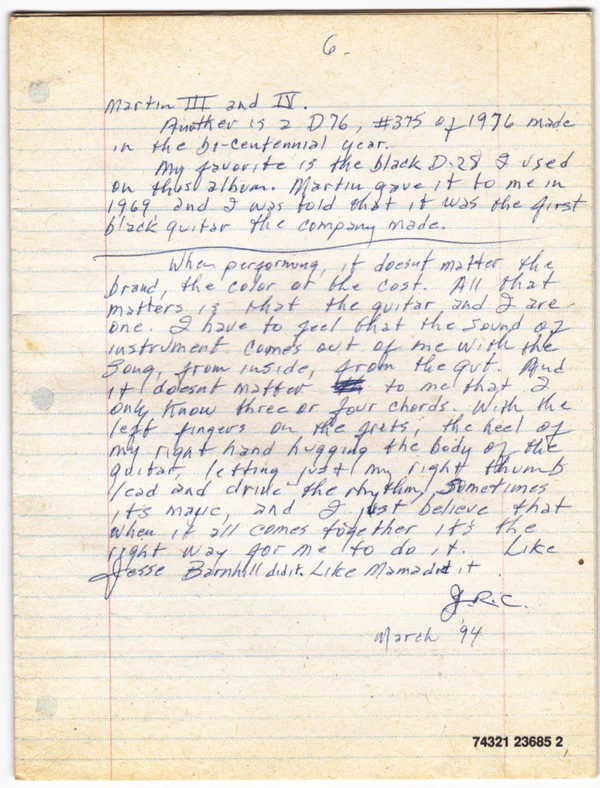 6.
Martin III and IV.
Another is a D76, #375 of 1976 made
in the bi-centennial year.
My favorite is the black D-28 I used
on this album. Martin gave it to me in
1969, and I was told that it was the first
black guitar the company made.
When performing, it doesnt matter the
brand, the color or the cost. All that
matters is that the guitar and I are
one. I have to feel that the sound of
instrument comes out of me with the
song, from inside, from the gut. And
it doesnt matter to me that I
only know three or four chords. With the
left fingers on the frets, the heel of
my right hand hugging the body of the
guitar, letting just my right thumb
lead and drive the rhythm, Sometimes
its magic, and I just believe that
when it all comes together it's the
right way for me to do it. Like
Jesse Barnhill did it. Like Mama did it
J.R.C.
March '94
74321 23685 2